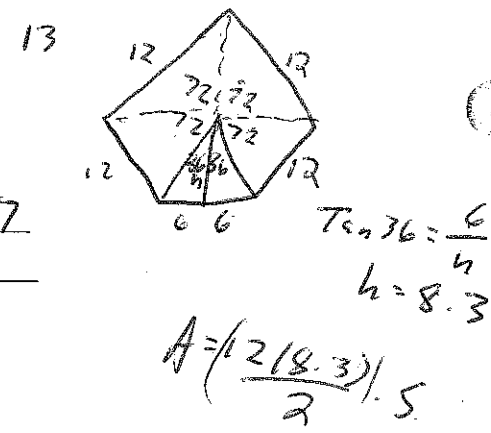 13
12 12
72 72
72 72
12 36 36 12
h
6 6
Tan 36 = 6/h
h = 8.3
A = (12(8.3)/2) . 5